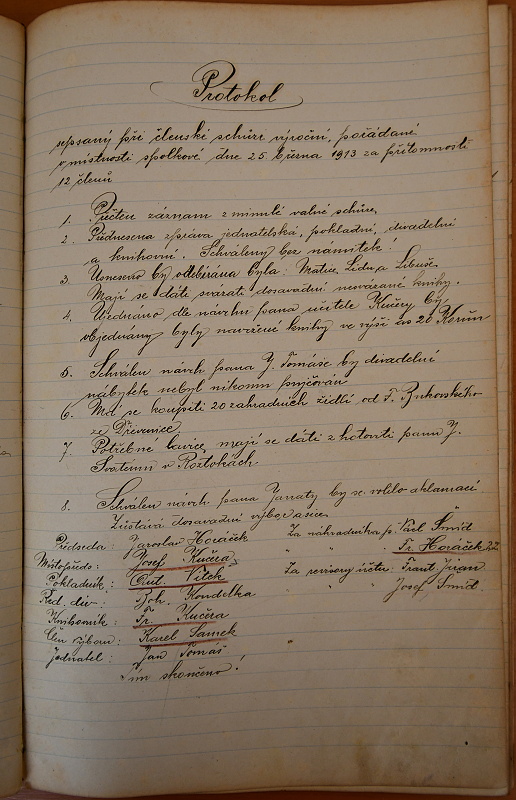 Protokol
sepsaný při členské schůzi výroční, pořádané
v místnosti spolkové dne 25. března 1913 za přítomnosti
12 členů
1. Přečten záznam z minulé valné schůze.
2. Přednesena zpráva jednatelská, pokladní, divadelní
a knihovní. Schváleny bez námitek!
3. Uneseno by odebírána byla: Matice Lidu a Libuše.
Mají se dáti svázati dosavadní nevázané knihy.
4. Ujednáno dle návrhu pana učitele Kučery by
objednány byly navržené knihy ve výši as 20 Korun
5. Schválen návrh pana J. Tomáše by divadelní
nábytek nebyl nikomu půjčován
6. Má se koupiti 20 zahradních židlí od F. Bukovského
ze Dřevenice.
7. Potřebné lavice, mají se dáti z hotoviti panu J.
v Roztokách
8. Schválen návrh pana by se volilo aklamací
Zůstává dosavadní výbor a sice
Předseda: Jaroslav Horáček Za náhradníka p. Karl Šmíd
Místopředs: Josef Kučera " " Fr. Horáček 22
Pokladník: Ant. Vítek Za revisory účtu: Frant.
Řed. div: Boh. Kondelka " " Josef Šmíd.
Knihovník: Fr. Kučera
Čle výboru: Karel Samek
Jednatel: Jan Tomáš
skončeno!